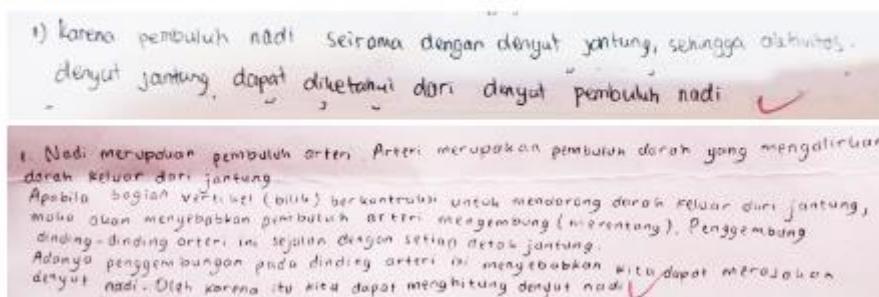 1) Karena pembuluh nadi seirama dengan denyut jantung, sehingga aktivitas
denyut jantung dapat diketahui dari denyut pembuluh nadi
1. Nadi merupakan pembuluh arteri Arteri merupakan pembuluh darah yang mengalirkan
darah keluar dari jantung
Apabila bagian (bilik) berkontraksi untuk mendorong darah keluar dari jantung,
maka akan menyebabkan pembuluh arteri mengembung (merentang). Penggembung
dinding-dinding arteri ini sejalan dengan setiap detak jantung.
Adanya penggembungan pada dinding arteri ini menyebabkan kita dapat merasakan
denyut nadi. Oleh karena itu kita dapat menghitung denyut nadi